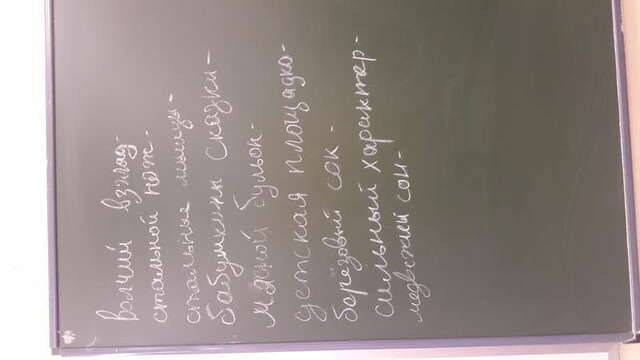 Волчий взгляд-
стальной нож-
стальные мышцы-
бабушкины сказки-
мясной бульон-
детская площадка-
березовый сок-
сильный характер-
медвежий сон-